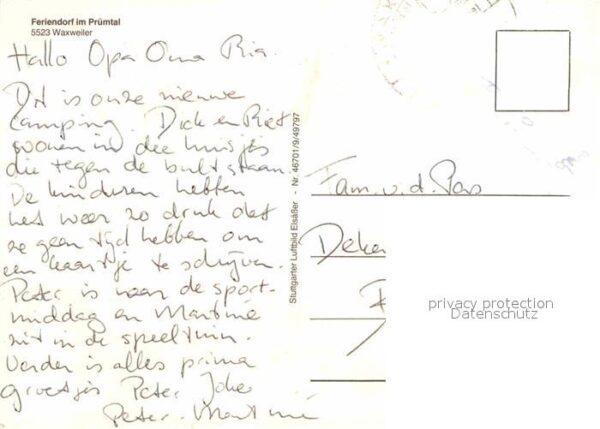 Feriendorf im Prümtal
5523 Waxweiler
Hallo Opa Oma Ria.
Dit is onze nieuwe
camping. Dick en Riet
wonen in die huisjes
die tegen de bult staan.
De kinderen hebben
het weer zo druk dat
ze geen tijd hebben om
een kaartje te schrijven.
Peter is naar de sport-
middag en Martine
zit in de speeltuin.
Verder is alles prima
groetjes Peter Joke
Peter. Martine
Stuttgarter Luftbild Elsäßer - Nr. 46701/9/49797
Fam. v.d. Pas
privacy protection
Datenschutz